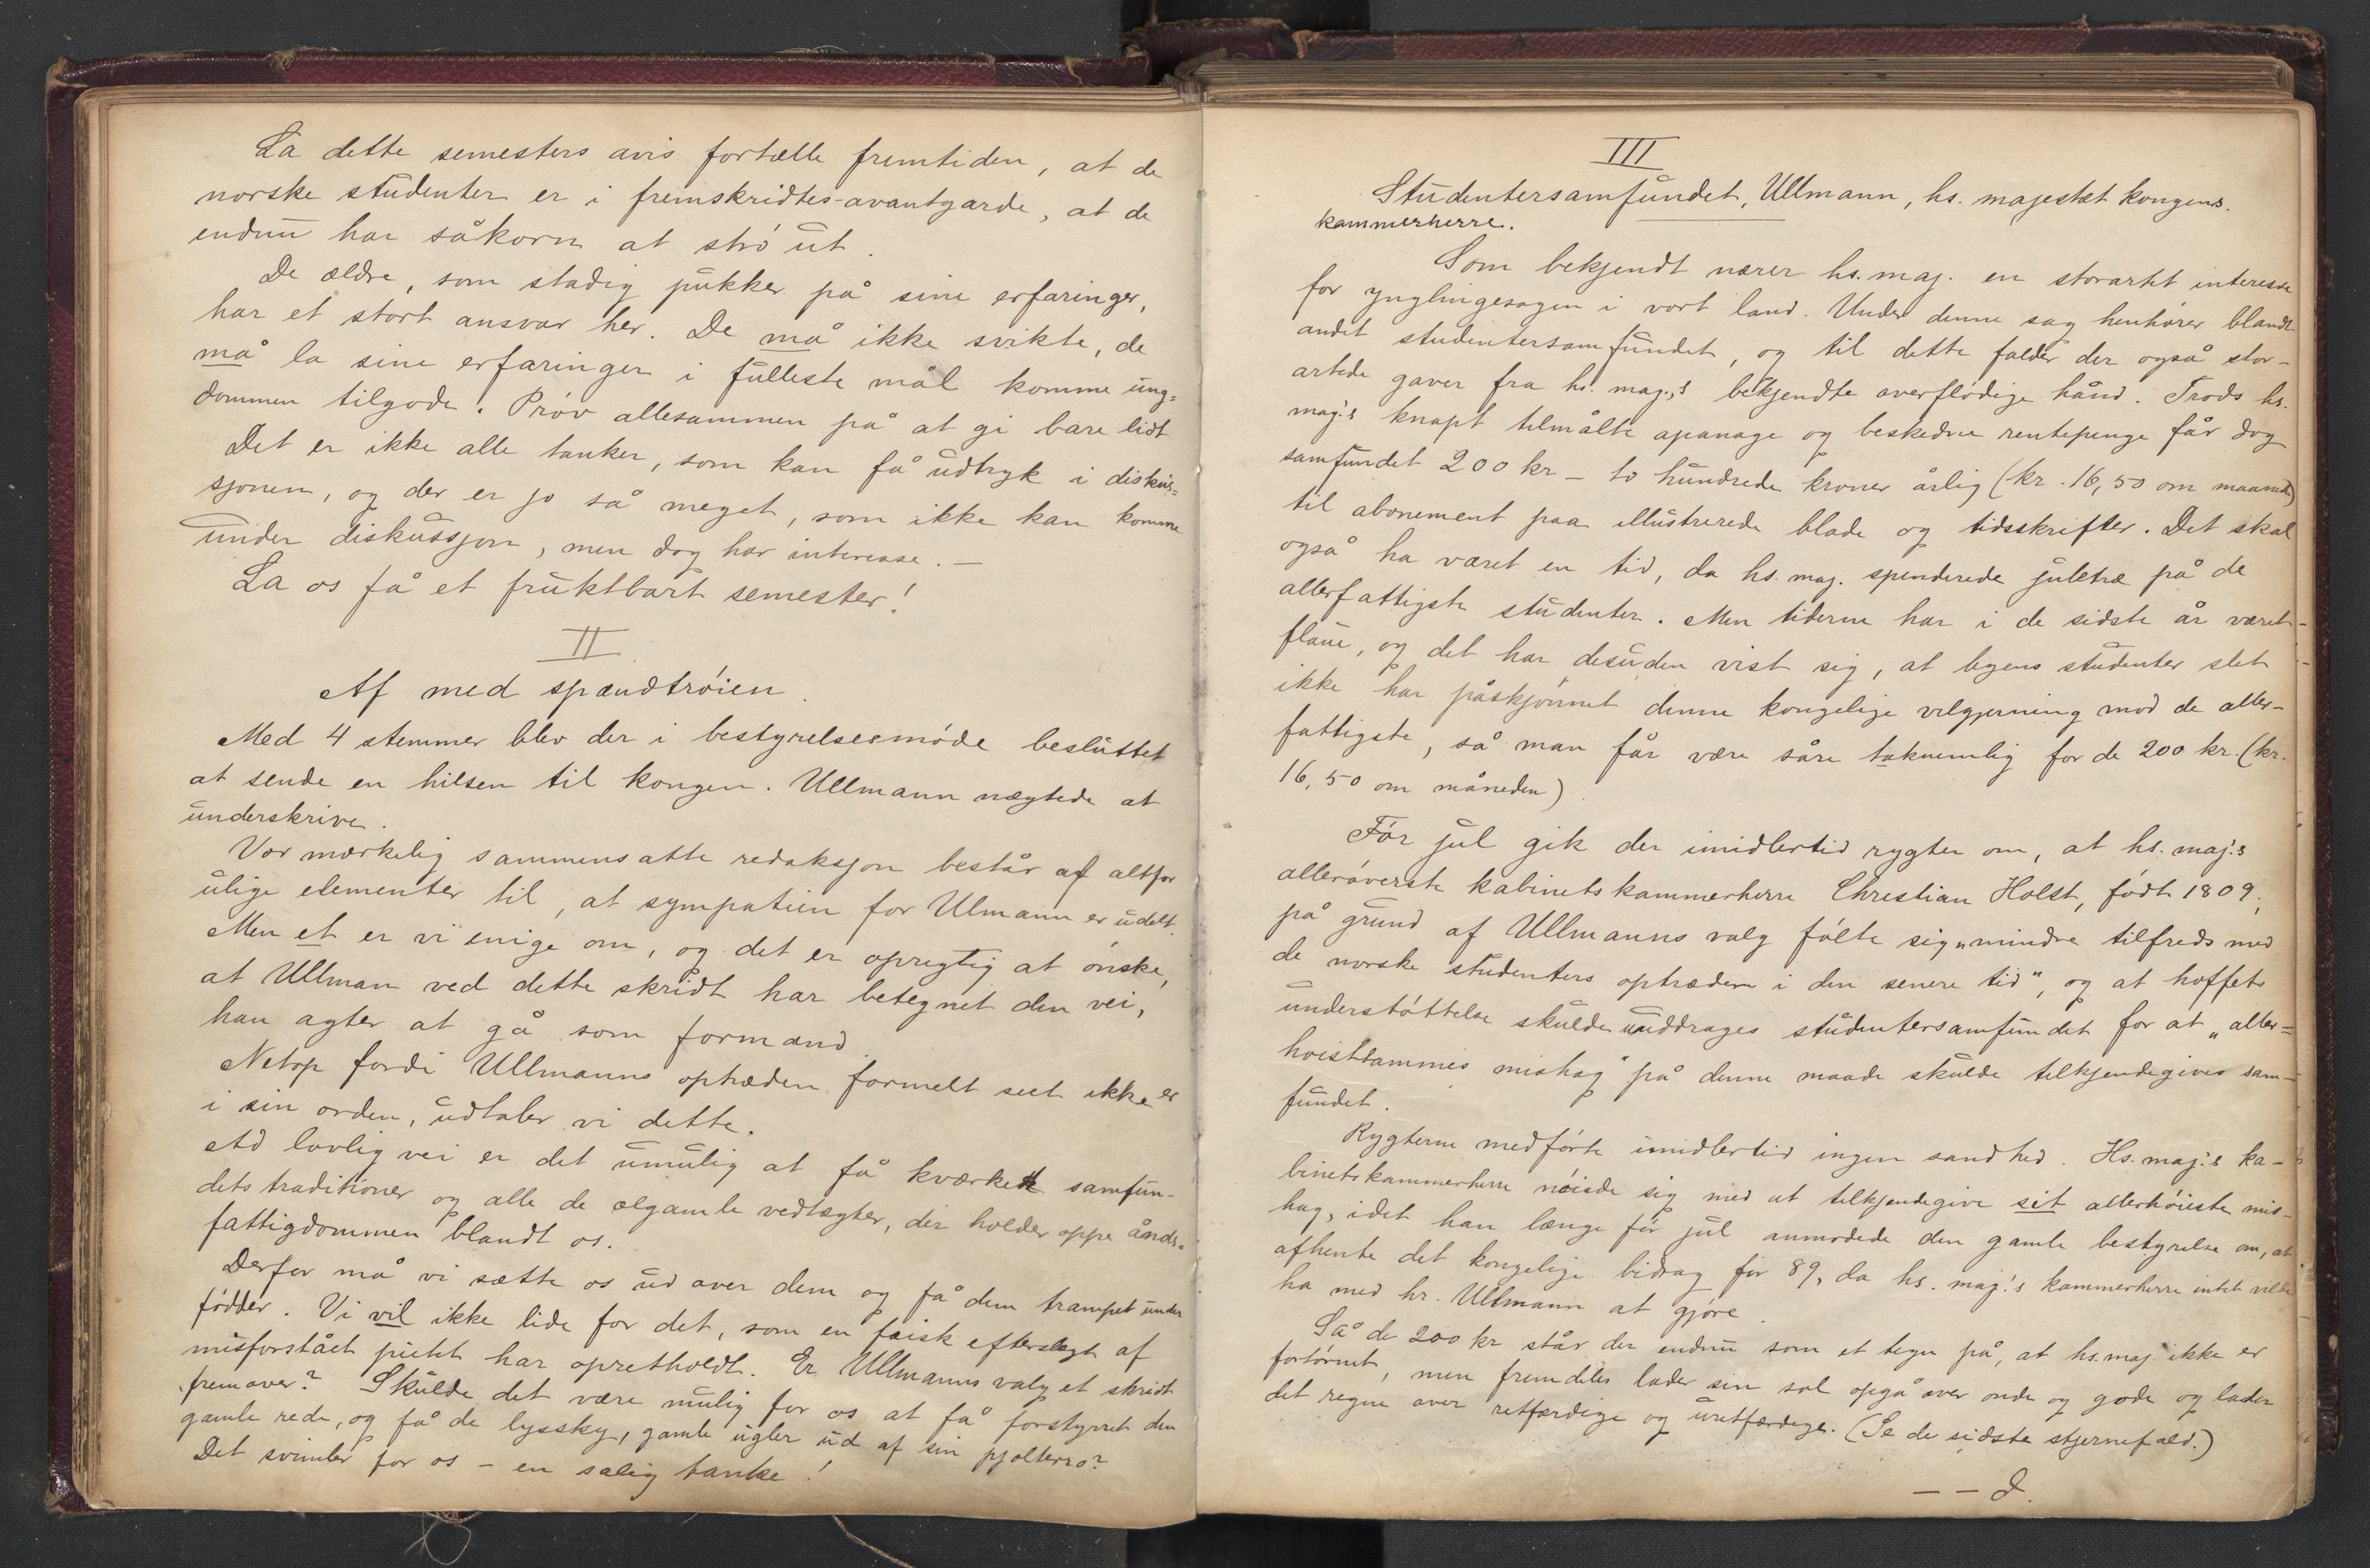 La dette semesters avis fortælle fremtiden, at de
norske studenter er i fremskridtes-avantgarde, at de
endnu har såkorn at strø ut.
De ældre, som stadig pukker på sine erfaringer,
har et stort ansvar her. De må ikke svikte, de
må la sine erfaringer i fulleste mål komme ung=
dommen tilgode. Prøv allesammen på at gi bare lidt
Det er ikke alle tanker, som kan få udtryk i diskus=
sjonen, og der er jo så meget, som ikke kan komme
under diskussjon, men dog har interesse. —
La os få et fruktbart semester!
II
Af med spændtrøien.
Med 4 stemmer blev der i bestyrelsesmøde besluttet
at sende en hilsen til kongen. Ullmann nægtede at
underskrive.
Vor mærkelig sammensatte redaksjon består af altfor
ulige elementer til, at sympatien for Ulmann er udelt.
Men et er vi enige om, og det er oprigtig at ønske,
at Ullman ved dette skridt har betegnet den vei,
han agter at gå som formand.
Netop fordi Ullmanns optræden formelt seet ikke er
i sin orden, udtaler vi dette.
Ad lovlig vei er det umulig at få kværket samfun-
dets traditioner og alle de ælgamle vedtægter, der holder oppe ånds=
fattigdommen blandt os.
Derfor må vi sætte os ud over dem og få dem trampet under
fødder. Vi vil ikke lide for det, som en feisk efterslegt af
misforstået pietet har opretholdt. Er Ullmanns valg et skridt
fremover? Skulde det være mulig for os at få forstyrret den
gamle rede, og få de lyssky, gamle ugler ud af sin pjolterro?
Det svimler for os – en salig tanke!
III
Studentersamfundet, Ullmann, hs. majestæt kongens
kammerherre.
Som bekjendt nærer hs. maj. en storartet interesse
for ynglingesagen i vort land. Under denne sag henhører blandt
andet studentersamfundet, og til dette falder der også stor-
artede gaver fra hs. maj.s bekjendte overflødige hånd. Trods hs.
maj:s knapt tilmålte apanage og beskedne rentepenge får dog
samfundet 200 kr – to hundrede kroner årlig (kr. 16,50 om maaned)
til abonement paa illustrerede blade og tidsskrifter. Det skal
også ha været en tid, da hs. maj. spenderede juletræ på de
allerfattigste studenter. Men tiderne har i de sidste år været
flaue, og det har desuden vist sig, at byens studenter slet
ikke har påskjønnet denne kongelige velgjerning mod de aller-
fattigste, så man får være såre taknemlig for de 200 kr. (kr.
16,50 om måneden).
Før jul gik der imidlertid rygter om, at hs. maj:s
allerøverste kabinetskammerherre Christian Holst, født 1809,
på grund af Ullmanns valg følte sig „mindre tilfreds med
de norske studenters optræden i den senere tid", og at hoffets
understøttelse skulde unddrages studentersamfundet for at „aller=
hoistsammes mishag" på denne maade skulde tilkjendegives sam-
fundet.
Rygterne medførte imidlertid ingen sandhed. Hs. maj:s ka-
binetskammerherre nøiede sig med at tilkjendegive sit allerhøieste mis-
hag, idet han længe før jul anmodede den gamle bestyrelse om, at
afhente det kongelige bidrag for 89, da hs. maj:s kammerherre intet vilde
ha med hr. Ullmann at gjøre.
Så de 200 kr står der endnu som et tegn på, at hs. maj. ikke er
fortørnet, men fremdeles lader sin sol opgå over onde og gode og lader
det regne over retfærdige og uretfærdige. (Se de sidste stjernefald.)
— — d.